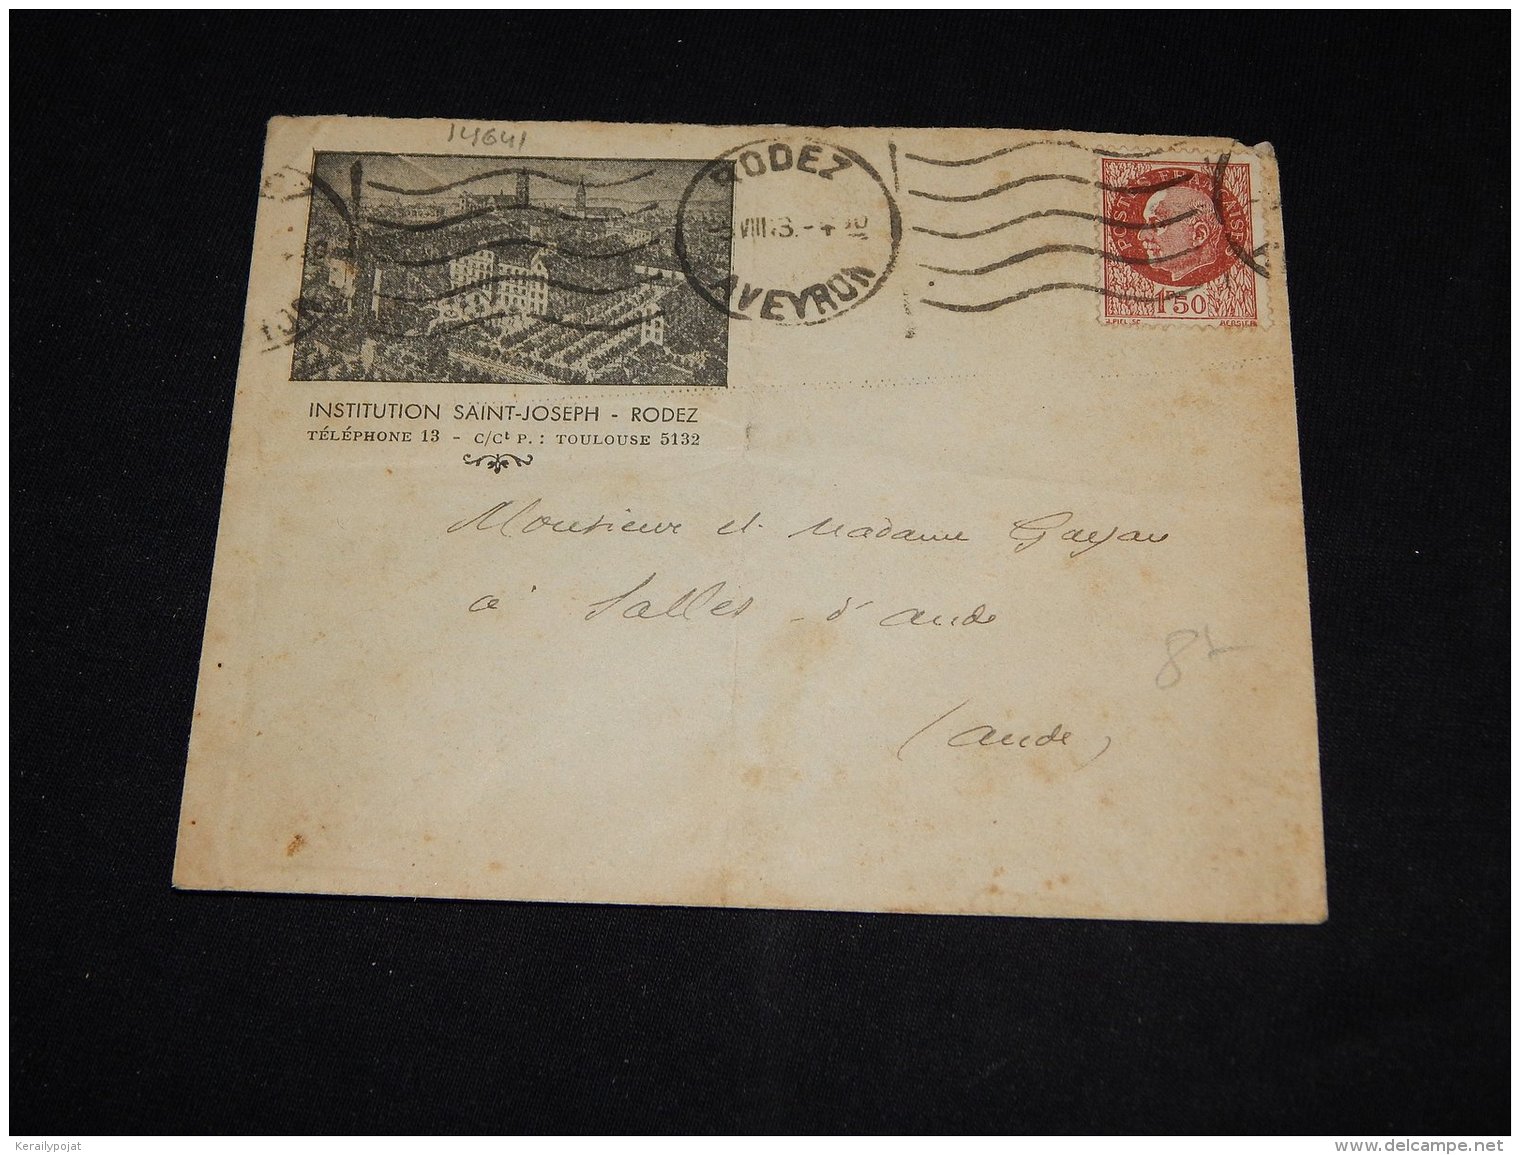 14641
RODEZ
VIII
AVEYRON
POSTES FRANÇAISES
1F50
BERSIER
INSTITUTION SAINT-JOSEPH - RODEZ
TÉLÉPHONE 13 - C/Ct P. : TOULOUSE 5132
Monsieur et Madame Gayau
à Salles-d'aude
(aude)
Kerailypojat
www.delcampe.net